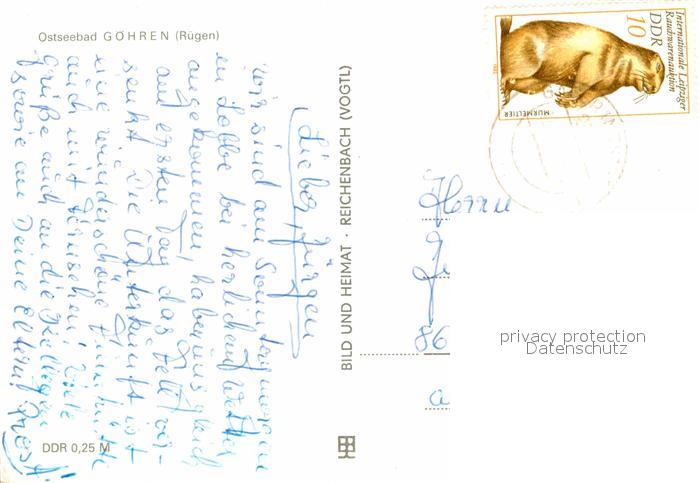 Ostseebad GÖHREN (Rügen)
Lieber Jürgen
wir sind am Sonntagmorgen
in Lobbe bei herlichem Wetter
angekommen, haben uns gleich
am ersten Tag das Fell ver-
senkt. Die Unterkunft ist
eine wunderschöne Finnhütte
auch mit Fernseher. Viele
Grüße auch an die Kollegen
sowie an Deine Eltern
DDR 0,25 M
BILD UND HEIMAT · REICHENBACH (VOGTL)
Internationale Leipziger
Rauchwarenauktion
DDR
10
MURMELTIER
Herrn
86
privacy protection
Datenschutz